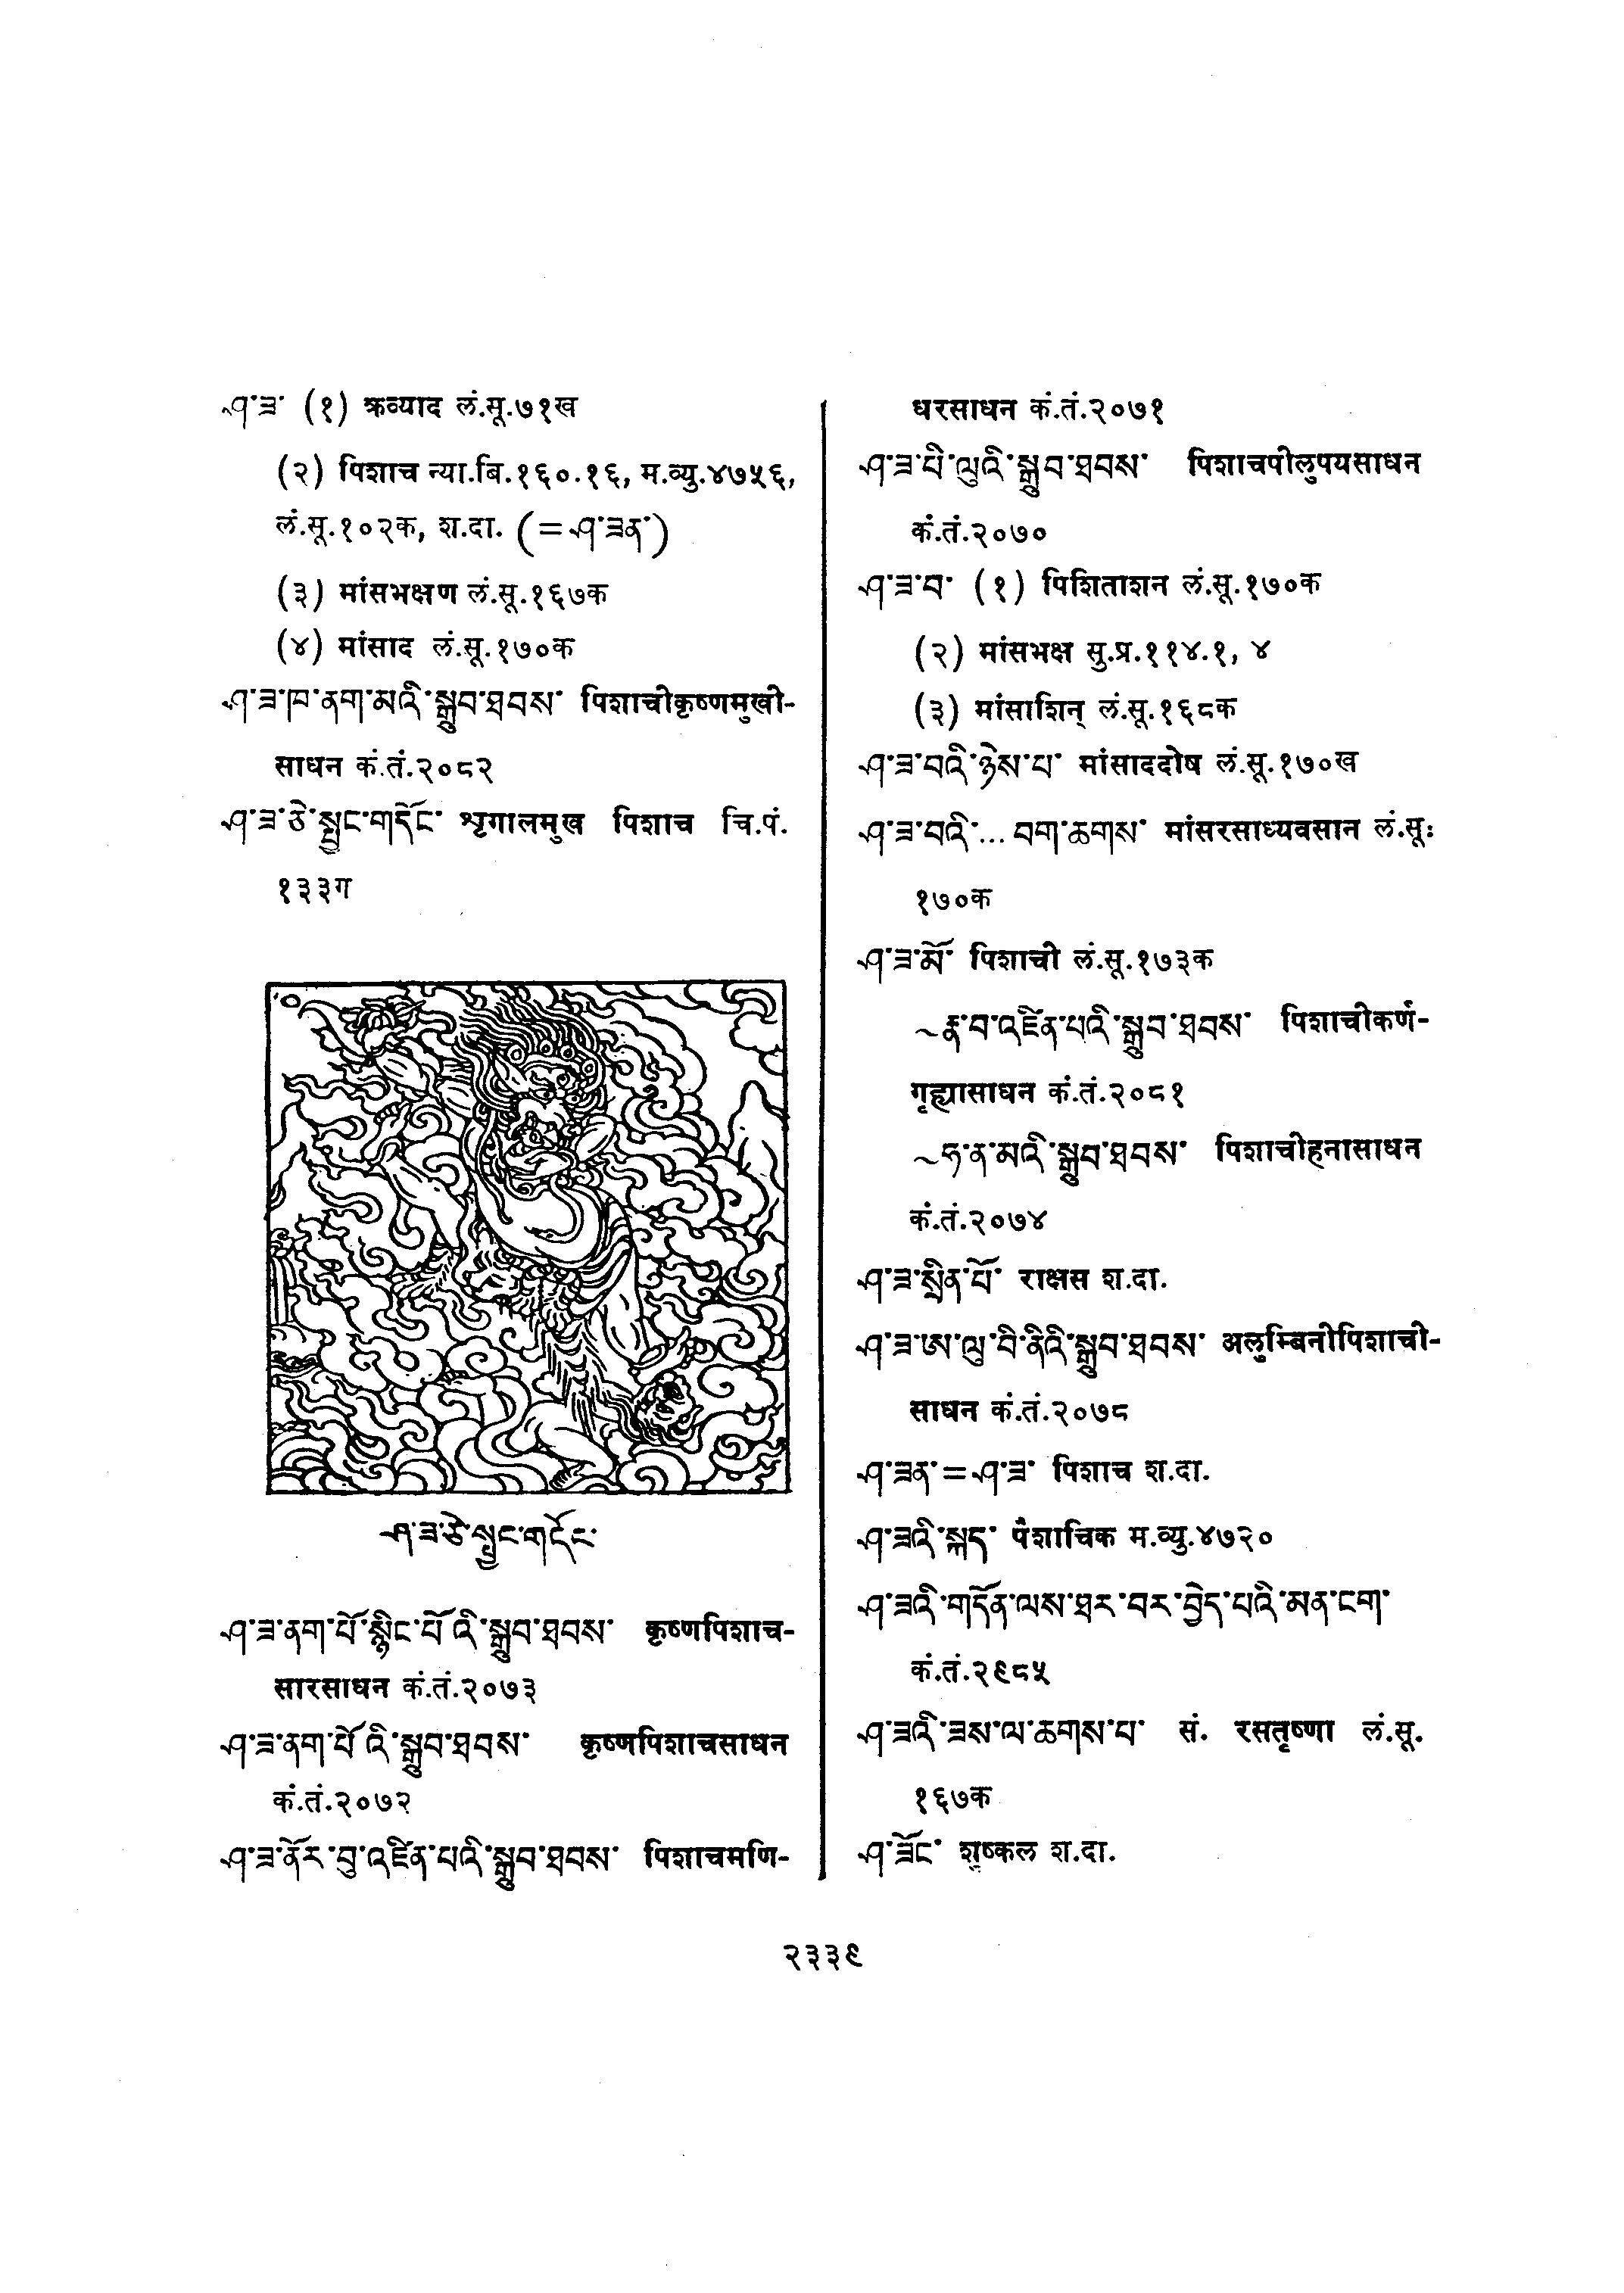 ཤ་ཟ་ (१) क्रव्याद लं.सू.७१ख
(२) पिशाच न्या.बि.१६०.१६, म.व्यु.४७५६,
लं.सू.१०२क, श.दा. (=ཤ་ཟན་)
(३) मांसभक्षण लं.सू.१६७क
(४) मांसाद लं.सू.१७०क
ཤ་ཟ་ཁ་ནག་མའི་སྒྲུབ་ཐབས་ पिशाचीकृष्णमुखी-
साधन कं.तं.२०८२
ཤ་ཟ་ཅེ་སྤྱང་གདོང་ शृगालमुख पिशाच चि.पं.
१३३ग
ཤ་ཟ་ཅེ་སྤྱང་གདོང་
ཤ་ཟ་ནག་པོ་སྙིང་པོ་འི་སྒྲུབ་ཐབས་ कृष्णपिशाच-
सारसाधन कं.तं.२०७३
ཤ་ཟ་ནག་པོ་འི་སྒྲུབ་ཐབས་ कृष्णपिशाचसाधन
कं.तं.२०७२
ཤ་ཟ་ནོར་བུ་འཛིན་པའི་སྒྲུབ་ཐབས་ पिशाचमणि-
धरसाधन कं.तं.२०७१
ཤ་ཟ་པི་ལུའི་སྒྲུབ་ཐབས་ पिशाचपीलुपयसाधन
कं.तं.२०७०
ཤ་ཟ་བ་ (१) पिशिताशन लं.सू.१७०क
(२) मांसभक्ष सु.प्र.११४.१, ४
(३) मांसाशिन् लं.सू.१६८क
ཤ་ཟ་བའི་ཉེས་པ་ मांसाददोष लं.सू.१७०ख
ཤ་ཟ་བའི་... བག་ཆགས་ मांसरसाध्यवसान लं.सू:
१७०क
ཤ་ཟ་མོ་ पिशाची लं.सू.१७३क
~རྣ་བ་འཛིན་པའི་སྒྲུབ་ཐབས་ पिशाचीकर्ण-
गृह्यासाधन कं.तं.२०८१
~ཧ་ན་མའི་སྒྲུབ་ཐབས་ पिशाचीहनासाधन
कं.तं.२०७४
ཤ་ཟ་སྲིན་པོ་ राक्षस श.दा.
ཤ་ཟ་ཨ་ལུ་བི་ནིའི་སྒྲུབ་ཐབས་ अलुम्बिनीपिशाची-
साधन कं.तं.२०७८
ཤ་ཟན་=ཤ་ཟ་ पिशाच श.दा.
ཤ་ཟའི་སྐད་ पैशाचिक म.व्यु.४७२०
ཤ་ཟའི་གདོན་ལས་ཐར་བར་བྱེད་པའི་མན་ངག་
कं.तं.२९८५
ཤ་ཟའི་ཟས་ལ་ཆགས་པ་ सं. रसतृष्णा लं.सू.
१६७क
ཤ་ཟོང་ शुष्कल श.दा.
२३३९